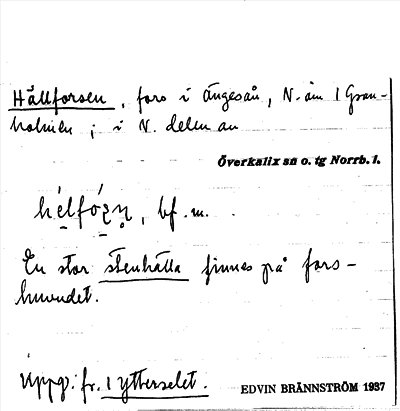 Hällforsen, fors i Ängesån, N. om 1 Gran-
holmen ; i N. delen av
Överkalix sn o. tg Norrb. l.
hélfóʂn̥, bf. m.
En stor stenhälla finnes på fors-
huvudet.
Uppg. fr. 1 Ytterselet.
EDVIN BRÄNNSTRÖM 1937